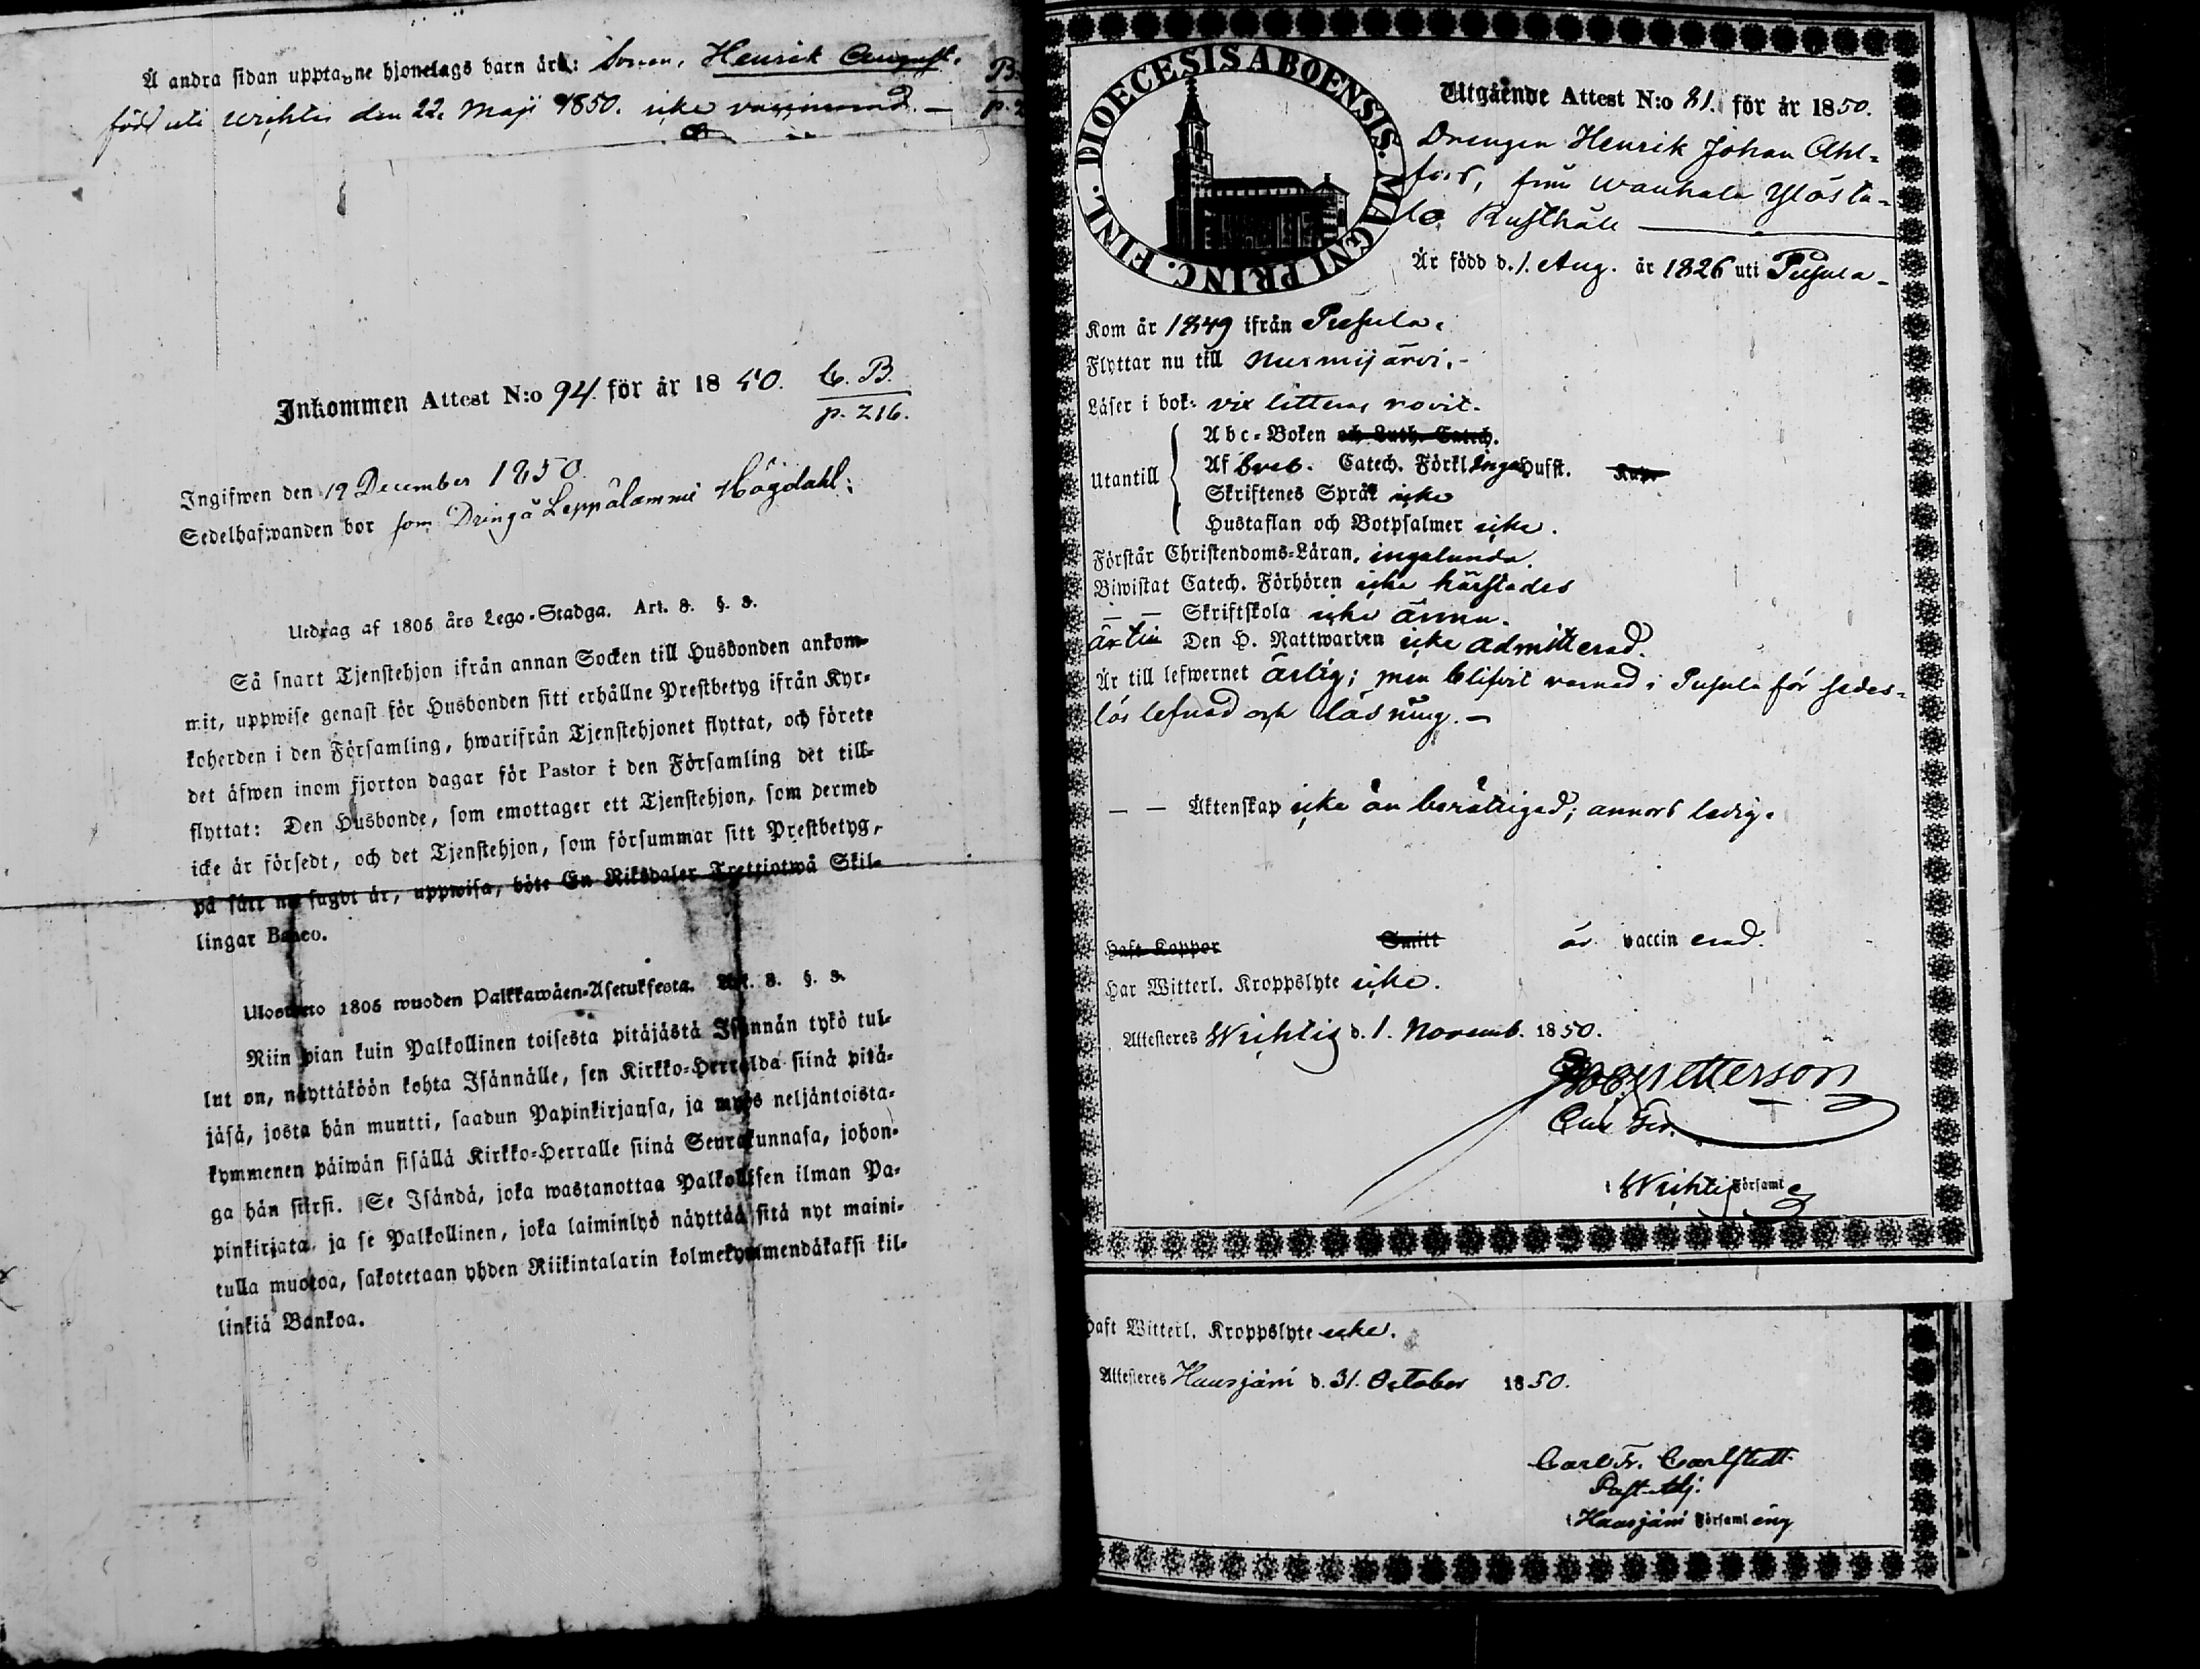 Å andra sidan upptagne hjonelags barn äro: Sonen, Henrik August,
född uti Wichtis den 22. Maji 1850. icke vaccinerad. —
B.
p. 2
Inkommen Attest N:o 94. för år 1850.
C. B.
p. 216.
Ingifwen den 19 December 1850.
Sedelhafwanden bor som Dräng å Leppälammi Högdahl;
Utdrag af 1805 års Lego-Stadga. Art. 8. §. 3.
Så snart Tjenstehjon ifrån annan Socken till Husbonden ankom-
mit, uppwise genast för Husbonden sitt erhållne Prestbetyg ifrån Kyr-
koherden i den Församling, hwarifrån Tjenstehjonet flyttat, och förete
det äfwen inom fjorton dagar för Pastor i den Församling det till-
flyttat: Den Husbonde, som emottager ett Tjenstehjon, som dermed
icke är försedt, och det Tjenstehjon, som försummar sitt Prestbetyg,
på sätt nu sagdt är, uppwisa, böte En Riksdaler Trettiotwå Skil-
lingar Banco.
Ulosweto 1805 wuoden Palkkawäen-Asetuksesta. Art. 8. §. 3.
Niin pian kuin Palkollinen toisesta pitäjästä Isännän tykö tul-
lut on, näyttäköön kohta Isännälle, sen Kirkko-Herralda siinä pitä-
jäsä, josta hän muutti, saadun Papinkirjansa, ja myös neljäntoista-
kymmenen päiwän sisällä Kirkko-Herralle siinä Seurakunnasa, johon-
ga hän siirsi. Se Isändä, joka wastanottaa Palkollisen ilman Pa-
pinkirjata, ja se Palkollinen, joka laiminlyö näyttää sitä nyt maini-
tulla muotoa, sakotetaan yhden Riikintalarin kolmekymmendäkaksi kil-
linkiä Bankoa.
DIOECESIS ABOENSIS. MAGNI PRINC. FINL.
Utgående Attest N:o 81. för år 1850.
Drengen Henrik Johan Ahl-
fors, från Wanhala Ylösta-
lo Rusthåll
Är född d. 1. Aug. år 1826 uti Pusula
Kom år 1849 ifrån Pusula.
Flyttar nu till Nurmijärvi.
Läser i bok: vix litteras novit.
Utantill
Abc-Boken och Luth. Catech.
Af Cat. Förkl. inga Hufst.
Skriftenes Språk icke
Hustaflan och Botpsalmer icke.
Förstår Christendoms-Läran, ingalunda.
Biwistat Catech. Förhören icke härstädes
— Skriftskola icke ännu.
Den H. Nattwarden icke admitterad.
Är till lefwernet ärlig; men blifvit varnad i Pusula för sedes-
lös lefnad och läsning. —
— — Äktenskap icke än berättigad; annars ledig.
Haft Koppor Smitt är vaccinerad.
Har Witterl. Kroppslyte icke.
Attesteres Wichtis d. 1. Novemb. 1850.
Petterson
i Wichtis Församl
Haft Witterl. Kroppslyte icke.
Attesteres Hausjärvi d. 31. October 1850.
Carl Fr. Carlstedt
Past. Adj.
i Hausjärvi Församling